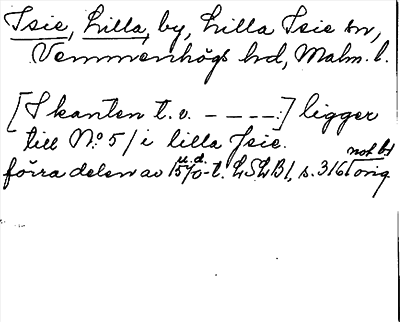 Isie, Lilla, by, Lilla Isie sn,
Vemmenhögs hd, Malm. l.
[I kanten t. v. – – – –:] ligger
till No: 5/ i lilla Jsie.
u. d.
not bd
förra delen av 15/0-t. LSLB 1, s. 316 orig